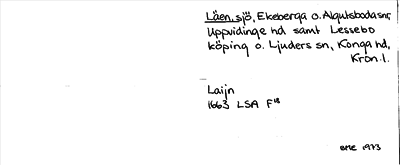 Läen, sjö, Ekeberga o. Algutsboda snr,
Uppvidinge hd samt Lessebo
köping o. Ljuders sn, Konga hd,
Kron. l.
Laijn
1663 LSA F18
BME 1973